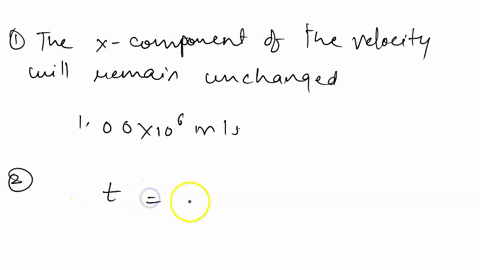 ① The x-component of the velocity
will remain unchanged
1.00x10⁶ m/s
② t = .